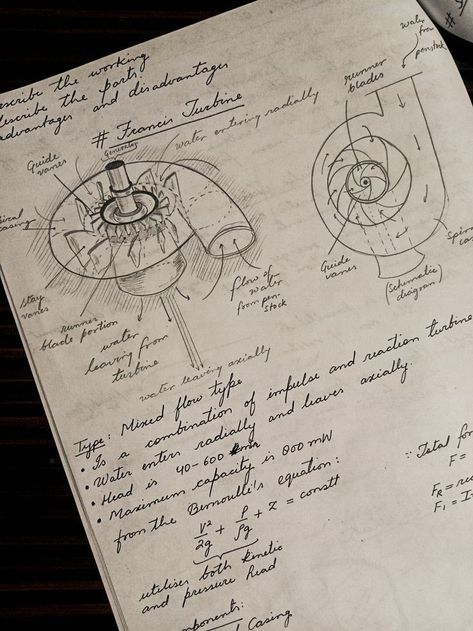 describe the working
describe the parts!
advantages and disadvantages
# Francis Turbine
Guide vanes
Generator
water entering radially
casing
stay vanes
runner blade portion
water leaving from turbine
flow of water from pen-stock
water leaving axially
runner blades
water from penstock
Guide vanes
(Schematic diagram)
Type: Mixed flow type
• Is a combination of impulse and reaction turbine
• Water enters radially and leaves axially.
• Head is 40-600
• Maximum capacity is 800 MW
from the Bernoulli's equation:
V²/2g + P/ρg + z = constt
utilises both kinetic
and pressure head
∵ Total for
F =
F_R = 
F_I = I
Casing